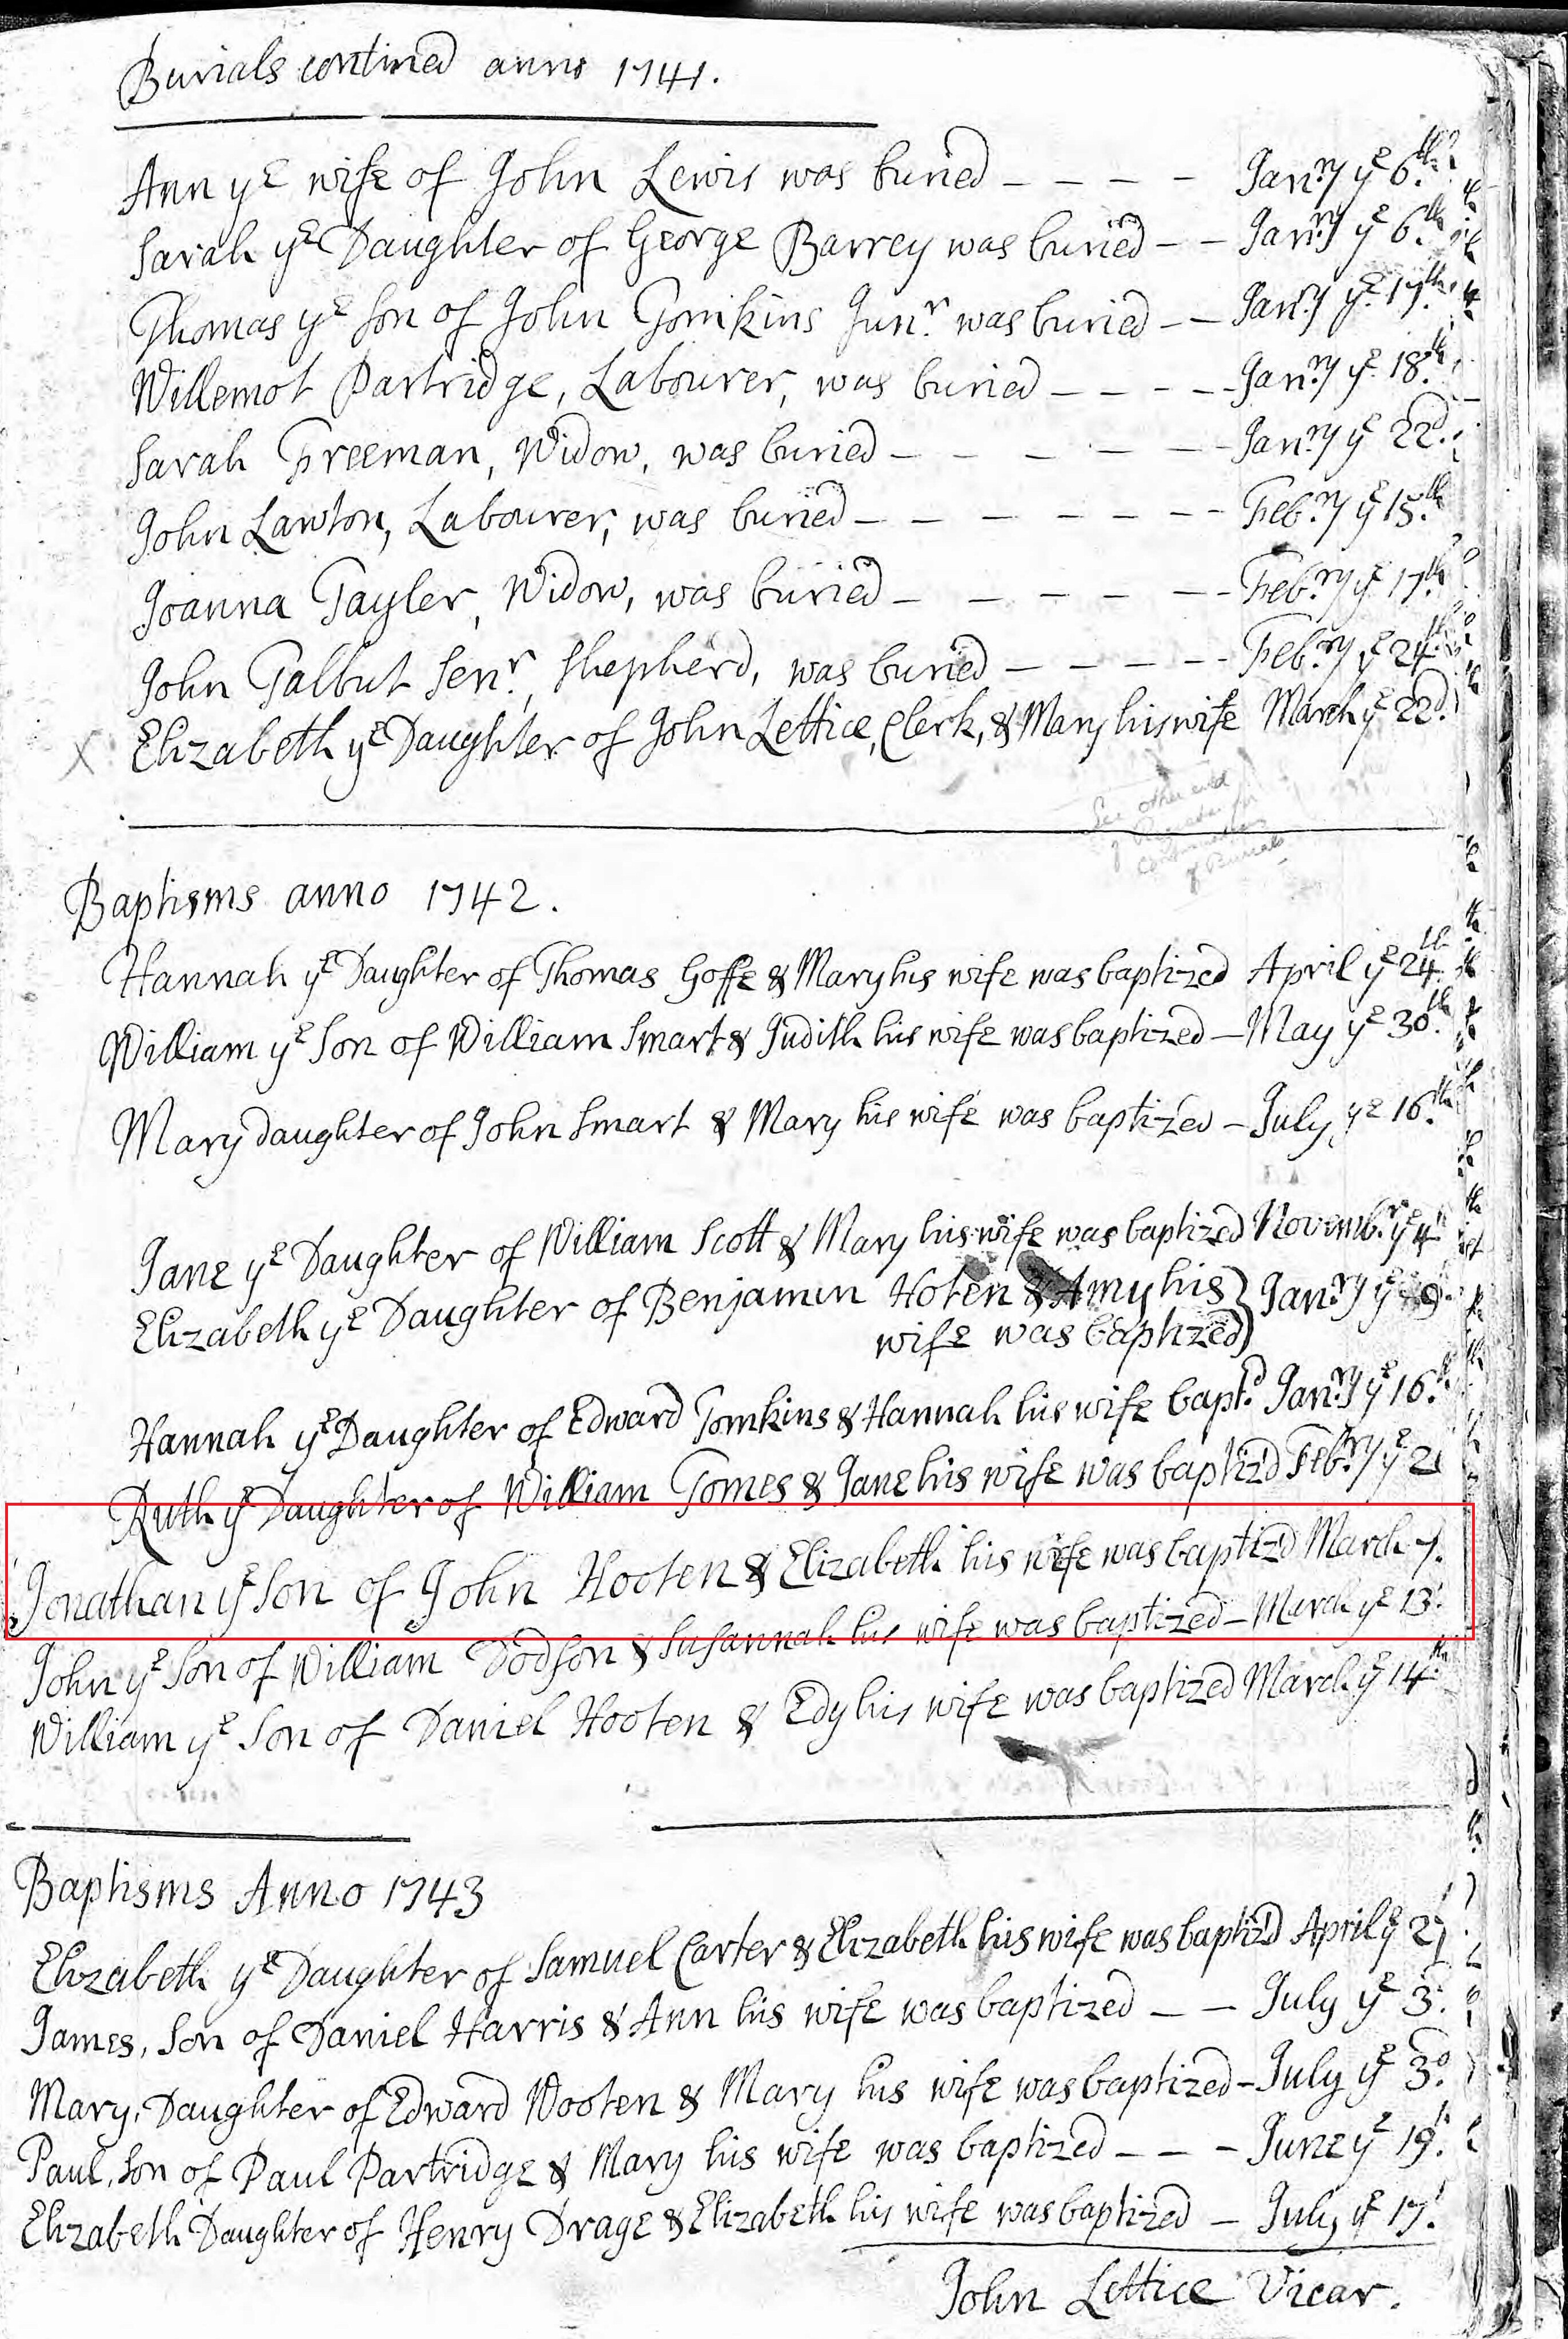 Burials contined anno 1741.
Ann yᵉ wife of John Lewis was buried - - - - Janʳʸ yᵉ 6ᵗʰ
Sarah yᵉ Daughter of George Barrey was buried - - Janʳʸ yᵉ 6ᵗʰ
Thomas yᵉ son of John Tomkins Junʳ was buried - - Janʳʸ yᵉ 17ᵗʰ
Willemot Partridge, Labourer, was buried - - - - Janʳʸ yᵉ 18ᵗʰ
Sarah Freeman, Widow, was buried - - - - - - Janʳʸ yᵉ 22ᵈ.
John Lawton, Labourer, was buried - - - - - - - Febʳʸ yᵉ 15ᵗʰ
Joanna Tayler, Widow, was buried - - - - - - Febʳʸ yᵉ 17ᵗʰ
John Talbut Senʳ, Shepherd, was buried - - - - - Febʳʸ yᵉ 24ᵗʰ
X Elizabeth yᵉ Daughter of John Lettice, Clerk, & Mary his wife March yᵉ 22ᵈ.
See other end
of Register for
continuation
of Burials
Baptisms anno 1742.
Hannah yᵉ Daughter of Thomas Goffe & Mary his wife was baptized April yᵉ 24ᵗʰ
William yᵉ Son of William Smart & Judith his wife was baptized - May yᵉ 30ᵗʰ
Mary daughter of John Smart & Mary his wife was baptized - July yᵉ 16ᵗʰ
Jane yᵉ Daughter of William Scott & Mary his wife was baptized Novembʳ yᵉ 4ᵗʰ
Elizabeth yᵉ Daughter of Benjamin Hoten & Amy his } Janʳʸ yᵉ 9
wife was baptized }
Hannah yᵉ Daughter of Edward Tomkins & Hannah his wife baptᵈ Janʳʸ yᵉ 16ᵗʰ
Ruth yᵉ Daughter of William Tomes & Jane his wife was baptiz'd Febʳʸ yᵉ 2
Jonathan yᵉ Son of John Hooten & Elizabeth his wife was baptiz'd March 7.
John yᵉ Son of William Dodson & Susannah his wife was baptized - March yᵉ 13.
William yᵉ Son of Daniel Hooten & Edy his wife was baptized March yᵉ 14ᵗʰ
Baptisms Anno 1743
Elizabeth yᵉ Daughter of Samuel Carter & Elizabeth his wife was baptiz'd April yᵉ
James, Son of Daniel Harris & Ann his wife was baptized - - July yᵉ 3.
Mary, Daughter of Edward Wooten & Mary his wife was baptized - July yᵉ 3ᵈ.
Paul, Son of Paul Partridge & Mary his wife was baptized - - - June yᵉ 19.
Elizabeth Daughter of Henry Drage & Elizabeth his wife was baptized - July yᵉ 17.
John Lettice Vicar.